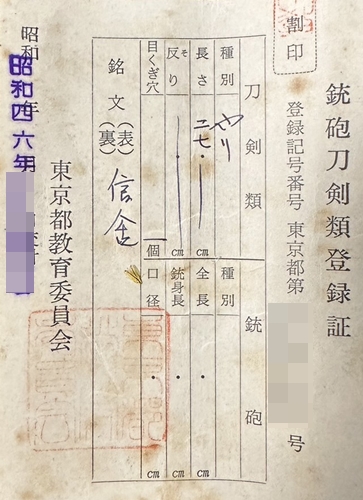 銃砲刀剣類登録証
割印
登録記号番号 東京都第 号
刀剣類 銃砲
種別 やり 種別
長さ 二七・ cm 全長 ・ cm
反り そ ・ cm 銃身長 ・ cm
目くぎ穴 一個 口径 ・ cm
銘文 (表) (裏) 信舎
東京都教育委員会
昭和 年
昭和四六年